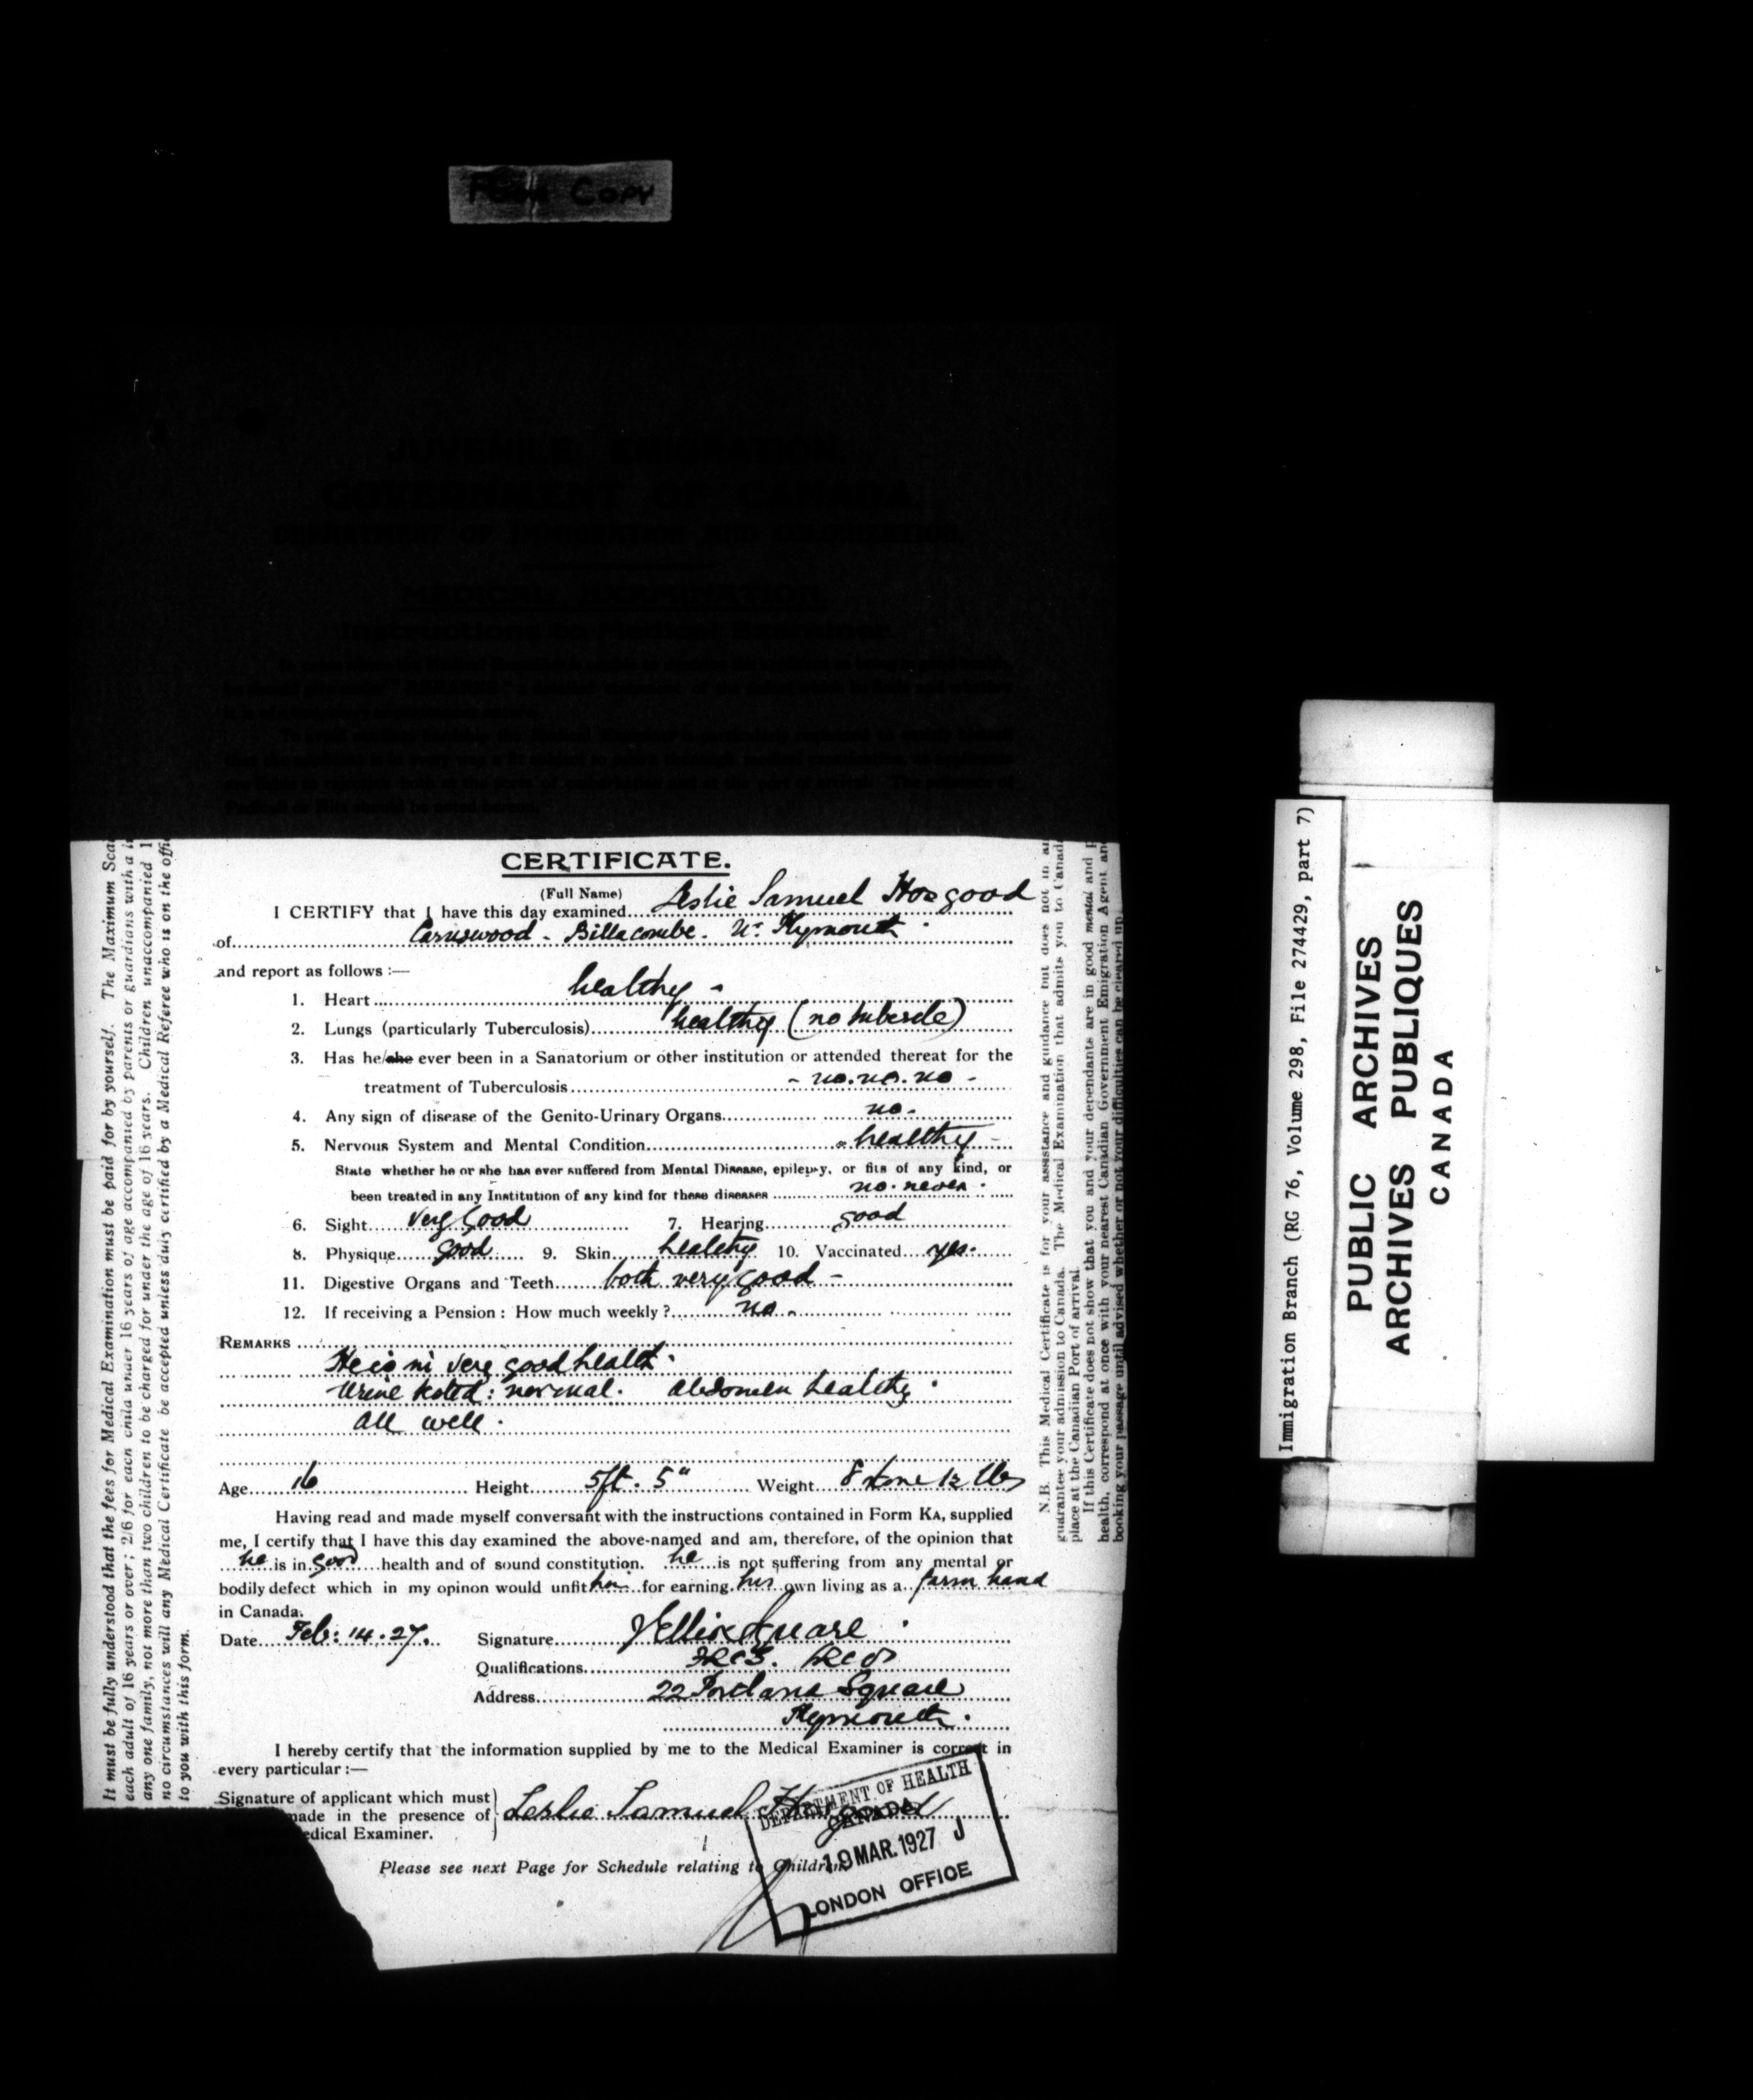 Copy
JUVENILE EMIGRATION.
GOVERNMENT OF CANADA.
DEPARTMENT OF IMMIGRATION AND COLONIZATION
MEDICAL EXAMINATION.
Instructions to Medical Examiner.
CERTIFICATE.
(Full Name)
I CERTIFY that I have this day examined Leslie Samuel Hosgood
of Billacombe. Nr. Plymouth.
and report as follows :—
1. Heart healthy -
2. Lungs (particularly Tuberculosis) healthy (no tubercle)
3. Has he/she ever been in a Sanatorium or other institution or attended thereat for the
treatment of Tuberculosis - no. no. no -
4. Any sign of disease of the Genito-Urinary Organs no.
5. Nervous System and Mental Condition healthy -
State whether he or she has ever suffered from Mental Disease, epilepsy, or fits of any kind, or
been treated in any Institution of any kind for these diseases no. never.
6. Sight very good 7. Hearing good
8. Physique good 9. Skin healthy 10. Vaccinated yes.
11. Digestive Organs and Teeth both very good -
12. If receiving a Pension : How much weekly ? no.
REMARKS
He is in very good health.
Urine tested: normal. Abdomen healthy.
All well.
Age 16 Height 5ft. 5" Weight 8 stone 12 lbs
Having read and made myself conversant with the instructions contained in Form KA, supplied
me, I certify that I have this day examined the above-named and am, therefore, of the opinion that
he is in good health and of sound constitution. he is not suffering from any mental or
bodily defect which in my opinon would unfit him for earning his own living as a farm hand
in Canada.
Date Feb: 14. 27. Signature J Elliot Square
Qualifications FRCS.
Address 22 Portland Square
Plymouth.
I hereby certify that the information supplied by me to the Medical Examiner is correct in
every particular :—
Signature of applicant which must
made in the presence of Leslie Samuel Hosgood
edical Examiner.
Please see next Page for Schedule relating to Children
DEPARTMENT OF HEALTH
CANADA
19 MAR. 1927 J
LONDON OFFICE
It must be fully understood that the fees for Medical Examination must be paid for by yourself. The Maximum Sca
each adult of 16 years or over ; 2/6 for each child under 16 years of age accompanied by parents or guardians with a
any one family, not more than two children to be charged for under the age of 16 years. Children unaccompanied 1
no circumstances will any Medical Certificate be accepted unless duly certified by a Medical Referee who is on the offi
to you with this form.
N.B. This Medical Certificate is for your assistance and guidance but does not in an
guarantee your admission to Canada. The Medical Examination that admits you to Canada
place at the Canadian Port of arrival.
If this Certificate does not show that you and your dependants are in good mental and p
health, correspond at once with your nearest Canadian Government Emigration Agent and
booking your passage until advised whether or not your difficulties can be cleared up.
Immigration Branch (RG 76, Volume 298, File 274429, part 7)
PUBLIC ARCHIVES
ARCHIVES PUBLIQUES
CANADA